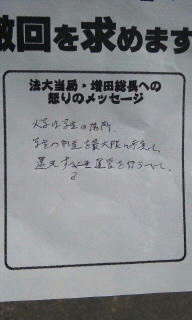 撤回を求めます
法大当局・増田総長への
怒りのメッセージ
大学は学生の場所。
学生の利益を最大限に
還元すべき運営を行うべし。